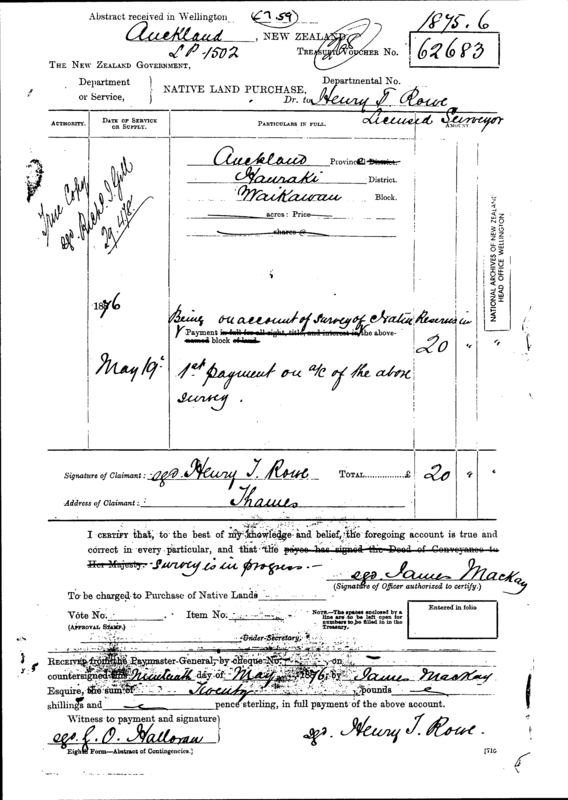 Abstract received in Wellington
67.59
1875.6
Auckland, NEW ZEALAND
LP-1502
TREASURY VOUCHER No.
62683
THE NEW ZEALAND GOVERNMENT,
Department or Service,
NATIVE LAND PURCHASE,
Departmental No.
Dr. to Henry T. Rowe
Licensed Surveyor
AUTHORITY.
DATE OF SERVICE OR SUPPLY.
PARTICULARS IN FULL.
AMOUNT.
Auckland Province District.
Hauraki District.
Waikawau Block.
acres: Price
shares @
True Copy
sgd. Richd. J. Gill
29.4.78.
NATIONAL ARCHIVES OF NEW ZEALAND
HEAD OFFICE WELLINGTON
1876
Being on account of Survey of Native Reserves in
Payment in full for all right, title, and interest in the above-
named block of land.
20 " "
May 19
1st payment on a/c of the above
survey.
Signature of Claimant: sgd. Henry T. Rowe
TOTAL............£ 20 " "
Address of Claimant: Thames
I CERTIFY that, to the best of my knowledge and belief, the foregoing account is true and
correct in every particular, and that the payee has signed the Deed of Conveyance to
Her Majesty. Survey is in progress.
sgd. James Mackay
(Signature of Officer authorized to certify.)
To be charged to Purchase of Native Lands
Vote No. Item No.
(APPROVAL STAMP.)
NOTE.—The spaces enclosed by a
line are to be left open for
numbers to be filled in in the
Treasury.
Entered in folio
Under-Secretary.
RECEIVED from the Paymaster-General, by cheque No. on
countersigned this Nineteenth day of May 1876, by James Mackay
Esquire, the sum of Twenty pounds
shillings and pence sterling, in full payment of the above account.
Witness to payment and signature
sgd. J. O. Halloran
sgd. Henry T. Rowe.
Eighth Form—Abstract of Contingencies.
[716